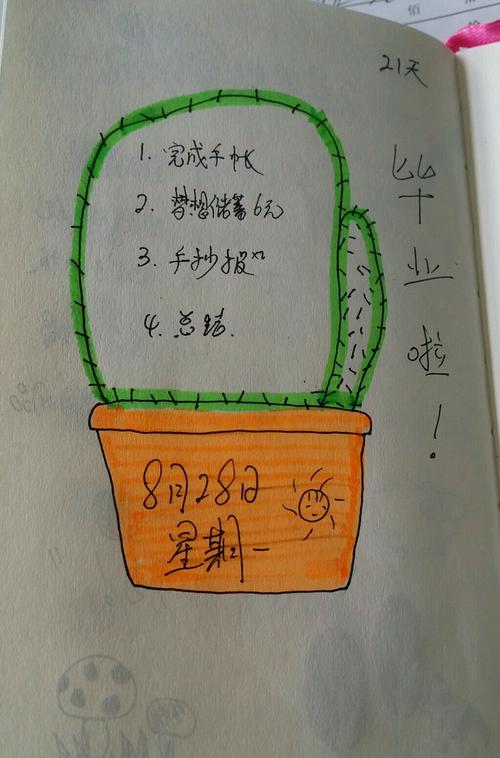 21天
1. 完成手帐
2. 梦想储蓄6元
3. 手抄报x1
4. 总结.
毕业啦!
8月28日
星期一